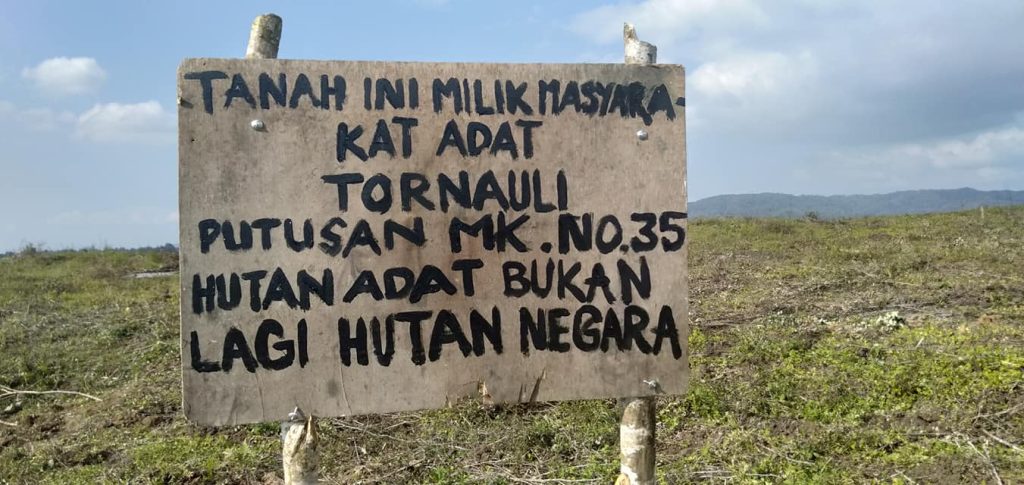 TANAH INI MILIK MASYARA-
KAT ADAT
TORNAULI
PUTUSAN MK.NO.35
HUTAN ADAT BUKAN
LAGI HUTAN NEGARA